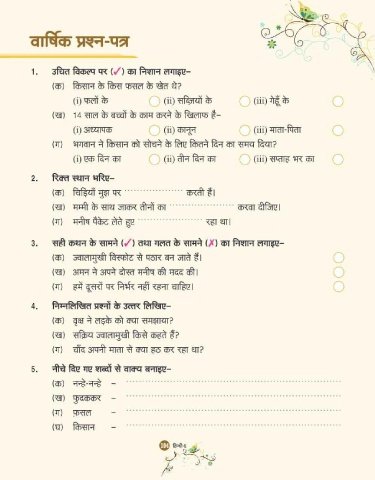 वार्षिक प्रश्न-पत्र
1. उचित विकल्प पर (✓) का निशान लगाइए–
(क) किसान के किस फसल के खेत थे?
(i) फलों के (ii) सब्ज़ियों के (iii) गेहूँ के
(ख) 14 साल के बच्चों के काम करने के खिलाफ है–
(i) अध्यापक (ii) कानून (iii) माता-पिता
(ग) भगवान ने किसान को सोचने के लिए कितने दिन का समय दिया?
(i) एक दिन का (ii) तीन दिन का (iii) सप्ताह भर का
2. रिक्त स्थान भरिए–
(क) चिड़ियाँ मुझ पर ................ करती हैं।
(ख) मम्मी के साथ जाकर तीनों का ................ करवा दीजिए।
(ग) मनीष पैकेट लेते हुए ................ रहा था।
3. सही कथन के सामने (✓) तथा गलत के सामने (✗) का निशान लगाइए–
(क) ज्वालामुखी विस्फोट से पठार बन जाते हैं।
(ख) अमन ने अपने दोस्त मनीष की मदद की।
(ग) हमें दूसरों पर निर्भर नहीं रहना चाहिए।
4. निम्नलिखित प्रश्नों के उत्तर लिखिए–
(क) वृक्ष ने लड़के को क्या समझाया?
(ख) सक्रिय ज्वालामुखी किसे कहते हैं?
(ग) चाँद अपनी माता से क्या हठ कर रहा था?
5. नीचे दिए गए शब्दों से वाक्य बनाइए–
(क) नन्हे-नन्हे – ................
(ख) फुदककर – ................
(ग) फ़सल – ................
(घ) किसान – ................
हिन्दी-4